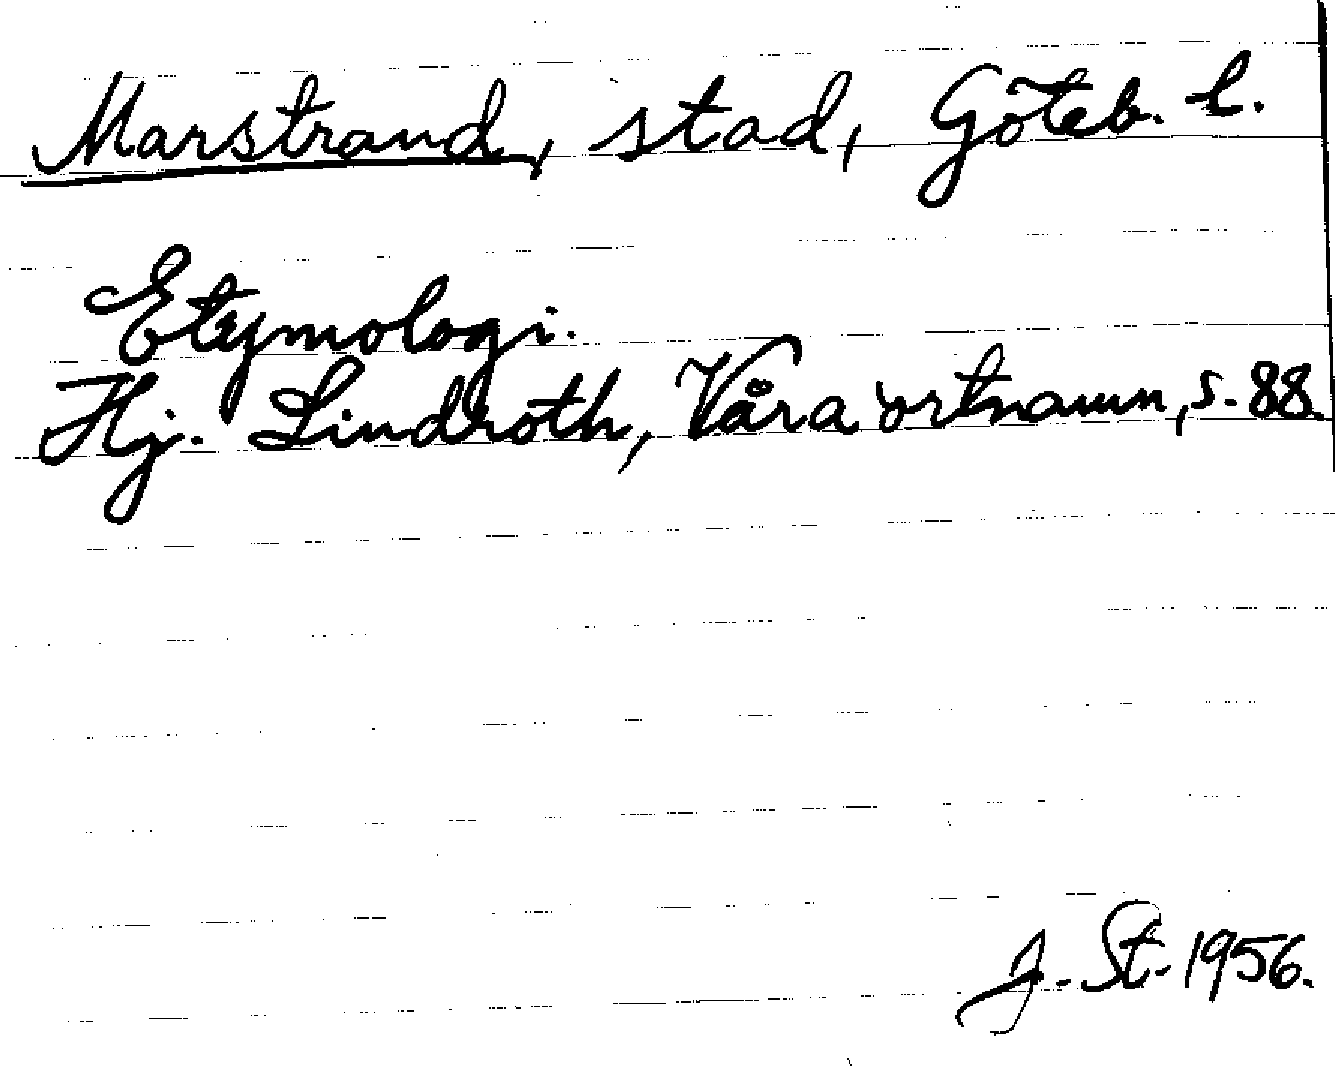 Marstrand, stad, Göteb. l.
Etymologi.
Hj. Lindroth, Våra ortnamn, s. 88.
J. St. 1956.